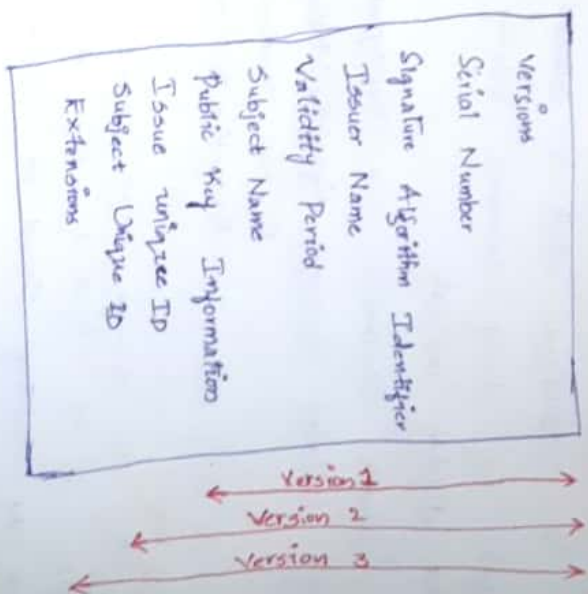 Versions
Serial Number
Signature Algorithm Identifier
Issuer Name
Validity Period
Subject Name
Public Key Information
Issue uniqee ID
Subject Unique ID
Extensions
Version 1
Version 2
Version 3